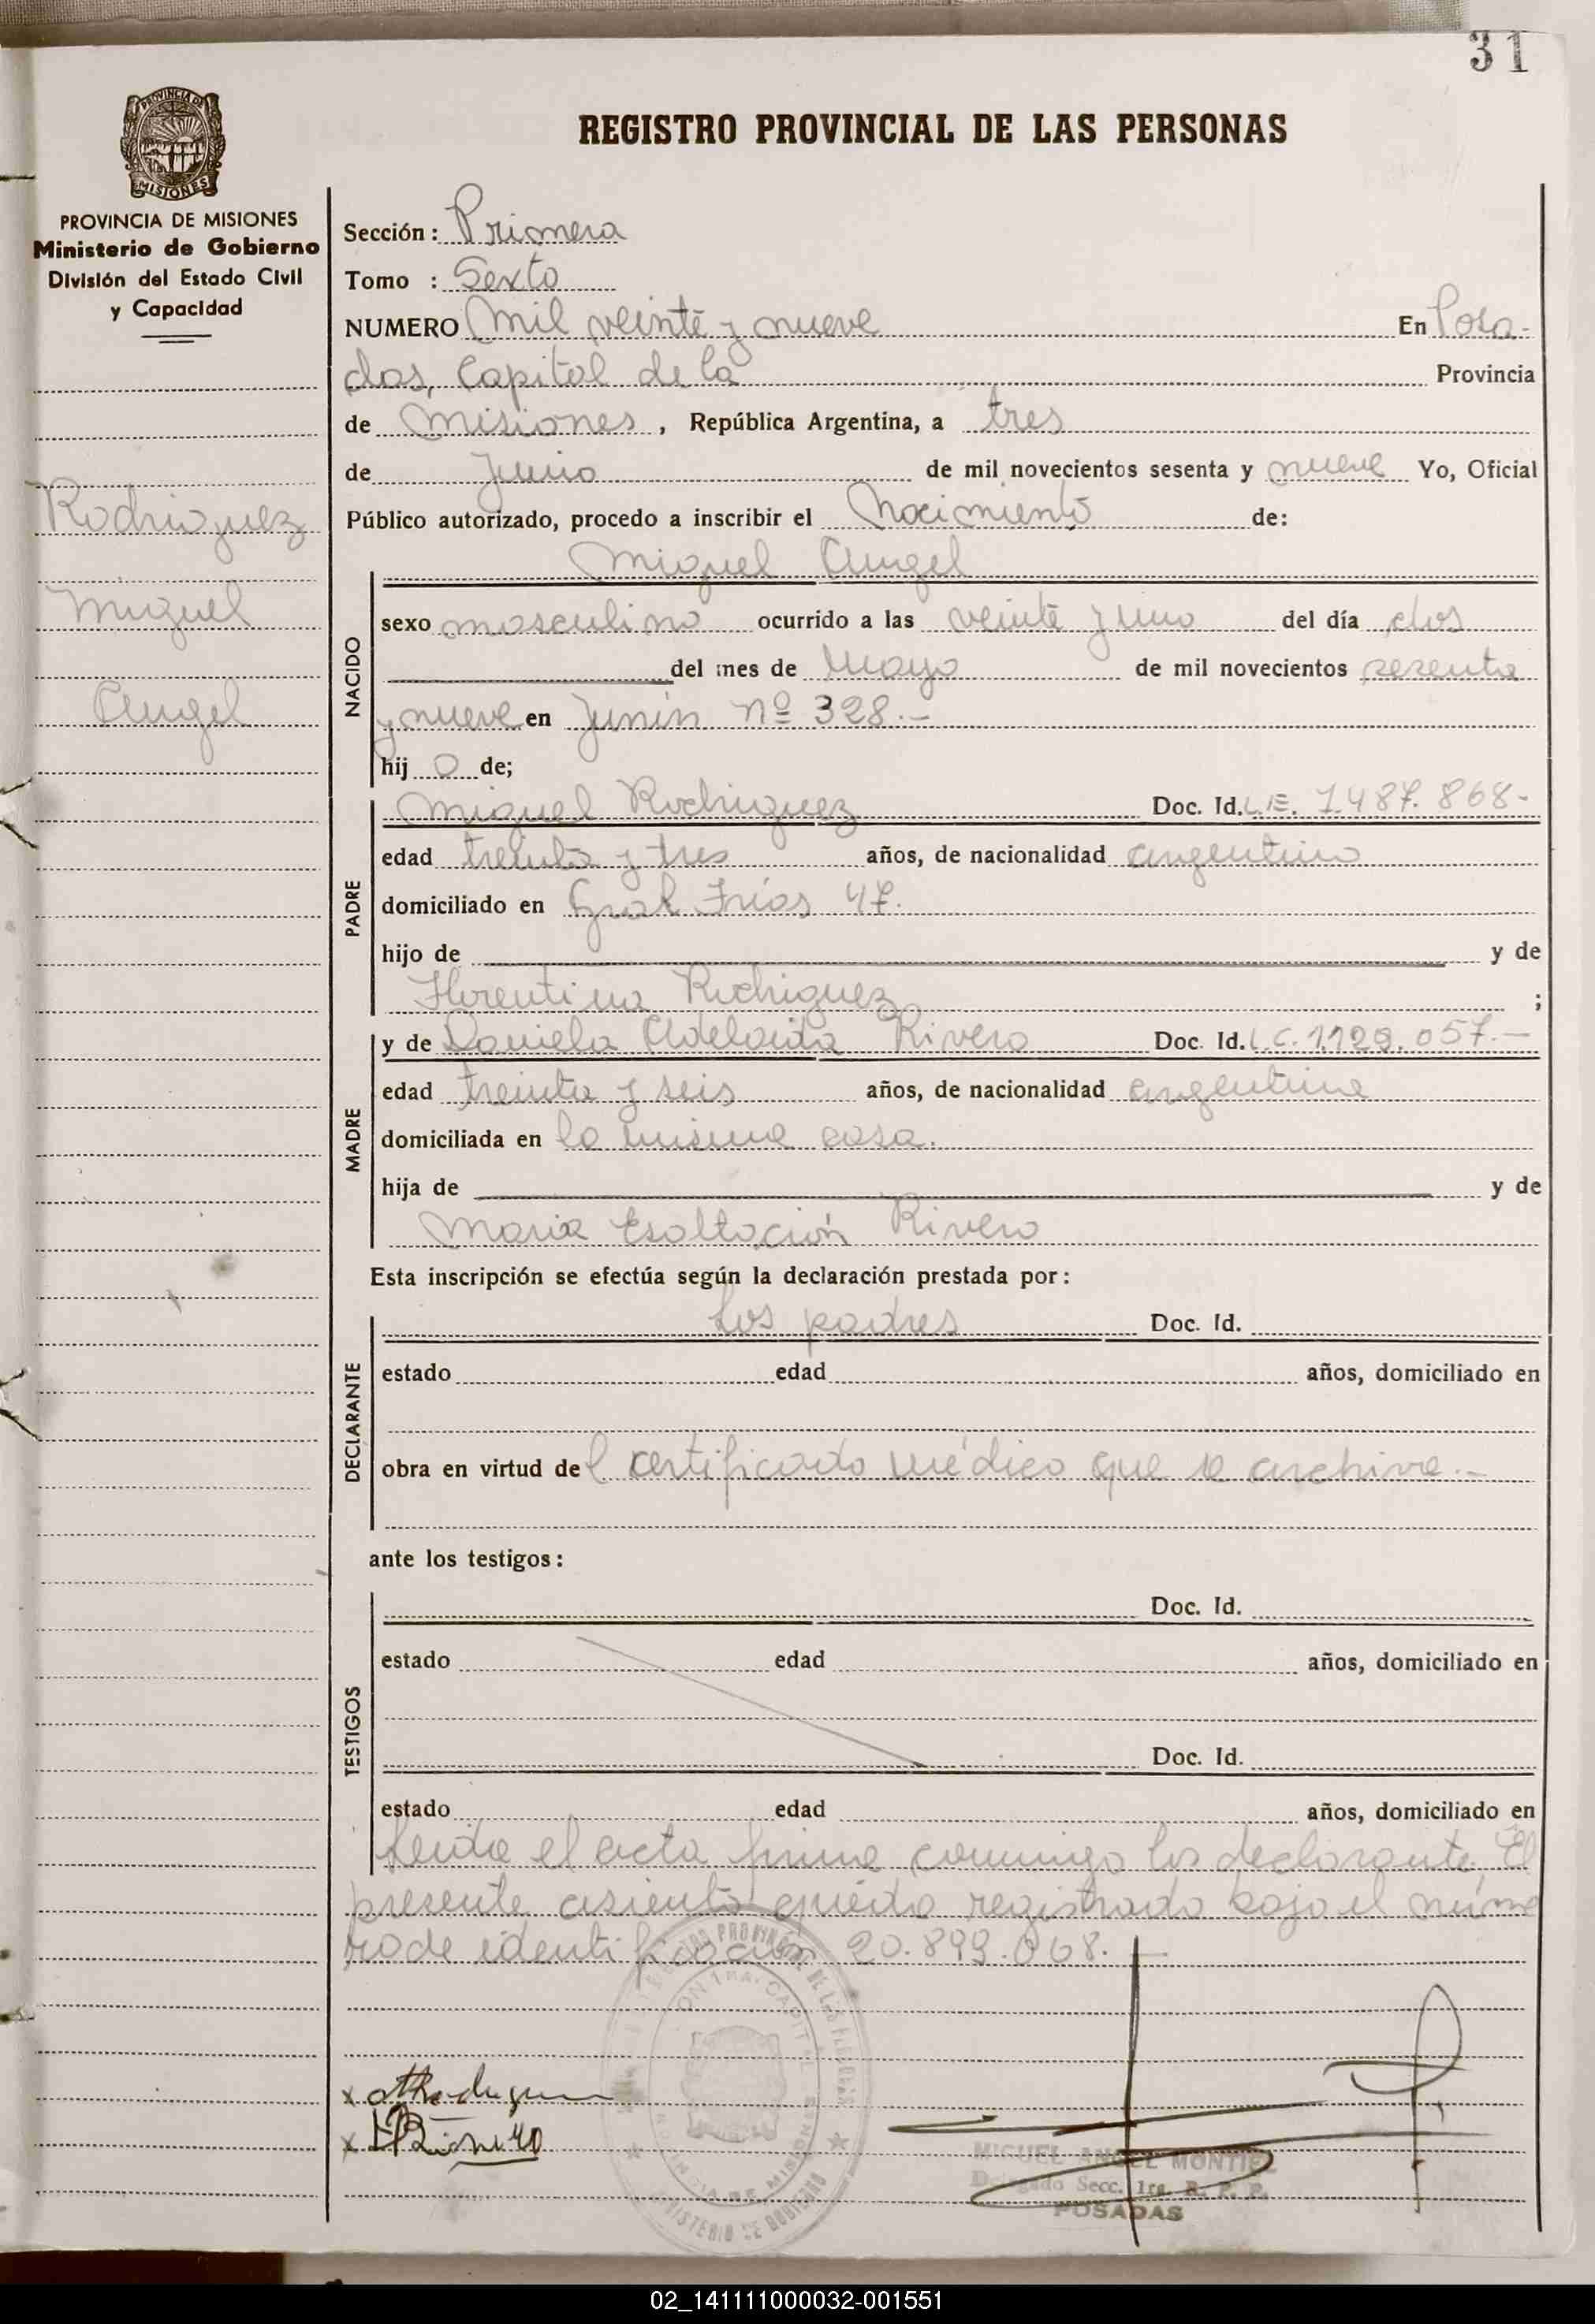 31
PROVINCIA DE
MISIONES
REGISTRO PROVINCIAL DE LAS PERSONAS
PROVINCIA DE MISIONES
Ministerio de Gobierno
División del Estado Civil
y Capacidad
Rodriguez
Miguel
Angel
Sección: Primera
Tomo : Sexto
NUMERO mil veinte y nueve En Posa-
das, Capital de la Provincia
de Misiones, República Argentina, a tres
de Junio de mil novecientos sesenta y nueve Yo, Oficial
Público autorizado, procedo a inscribir el Nacimiento de:
Miguel Angel
NACIDO
sexo masculino ocurrido a las veinte y uno del día dos
del mes de Mayo de mil novecientos sesenta
y nueve en Junín nº 328.-
hij o de;
PADRE
Miguel Rodriguez Doc. Id. L.E. 7.487.868-
edad treinta y tres años, de nacionalidad argentino
domiciliado en Gral Frías 47.
hijo de y de
Florentina Rodriguez ;
MADRE
y de Daniela Adelaida Rivero Doc. Id. L.C. 1.129.057.-
edad treinta y seis años, de nacionalidad argentina
domiciliada en la misma casa.
hija de y de
Maria Esaltación Rivero
Esta inscripción se efectúa según la declaración prestada por:
DECLARANTE
Los padres Doc. Id.
estado edad años, domiciliado en
obra en virtud del certificado médico que se archiva.-
ante los testigos:
TESTIGOS
Doc. Id.
estado edad años, domiciliado en
Doc. Id.
estado edad años, domiciliado en
Leida el acta firma conmigo los declarante. El
presente asiento queda registrado bajo el núme
ro de identificación 20.899.068.
MIGUEL ANGEL MONTIEL
Delegado Secc. 1ra. R. P. P.
POSADAS
02_141111000032-001551